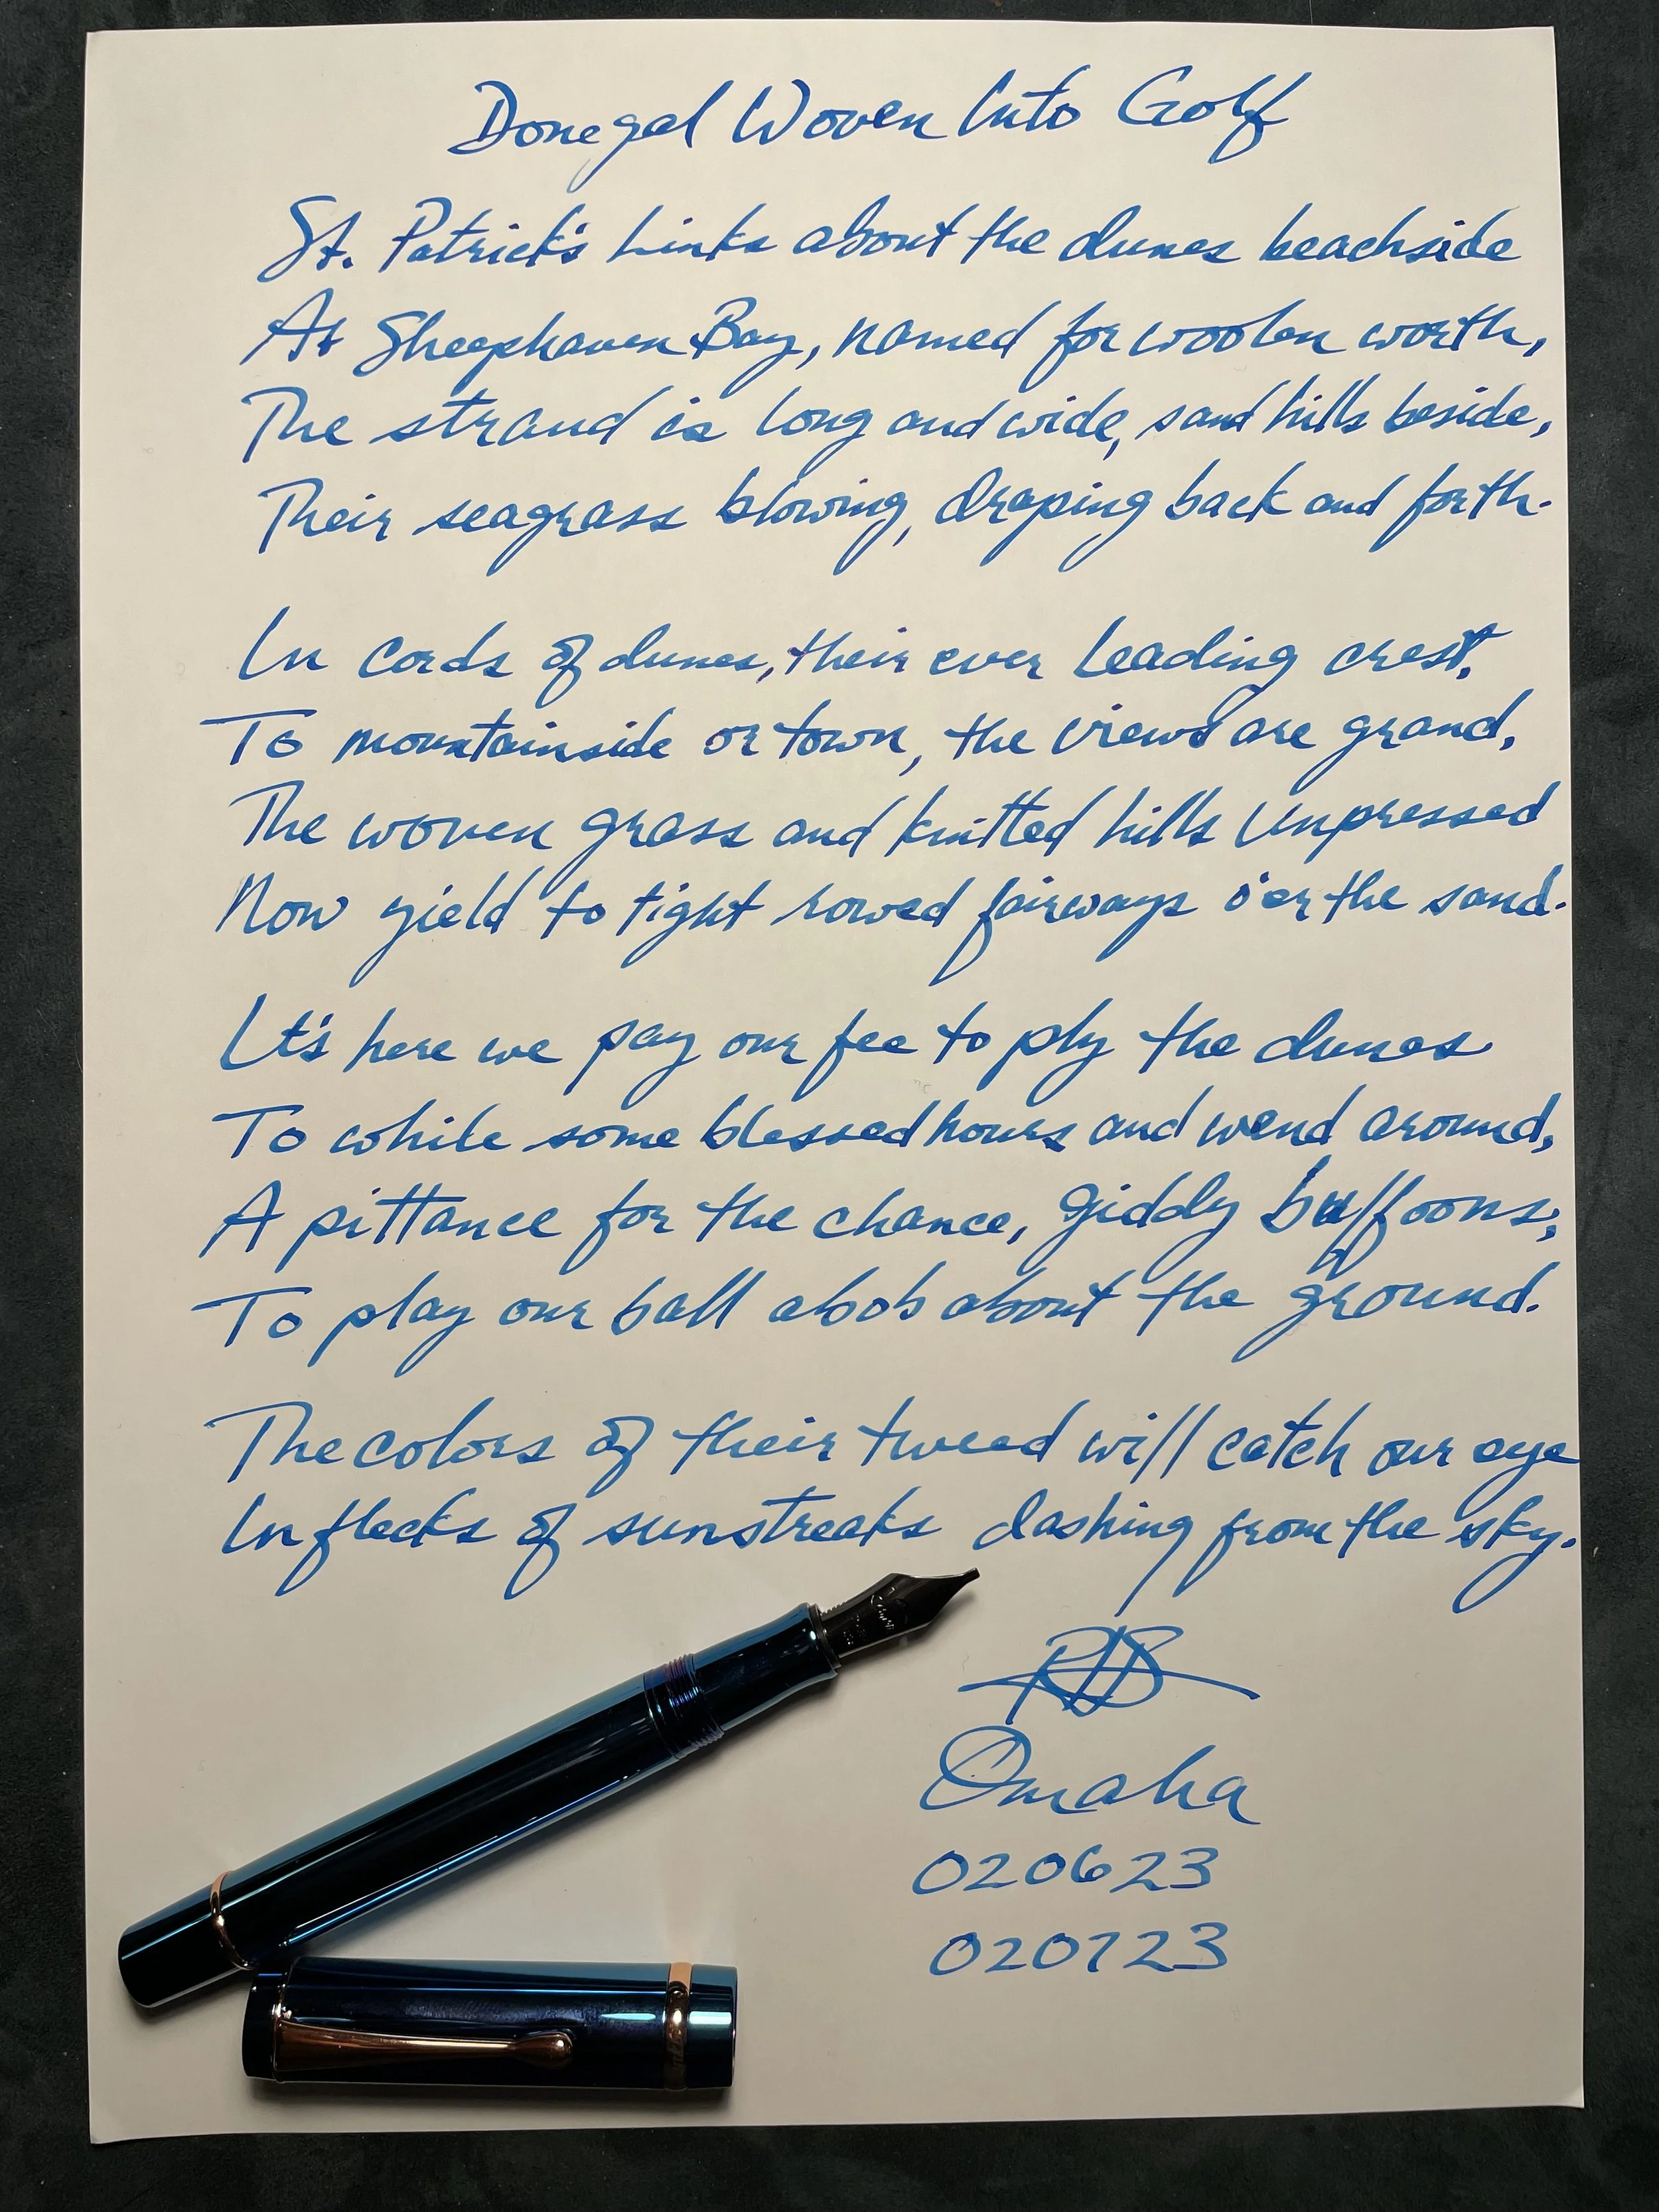 Donegal Woven Into Golf
St. Patrick's Links about the dunes beachside
At Sheephaven Bay, named for woolen worth,
The strand is long and wide, sand hills beside,
Their seagrass blowing, draping back and forth.
In cords of dunes, their ever leading crest,
To mountainside or town, the views are grand,
The woven grass and knitted hills unpressed
Now yield to tight rowed fairways o'er the sand.
It's here we pay our fee to ply the dunes
To while some blessed hours and wend around,
A pittance for the chance, giddy buffoons,
To play our ball abob about the ground.
The colors of their tweed will catch our eye
In flecks of sunstreaks dashing from the sky.
RJB
Omaha
020623
020723